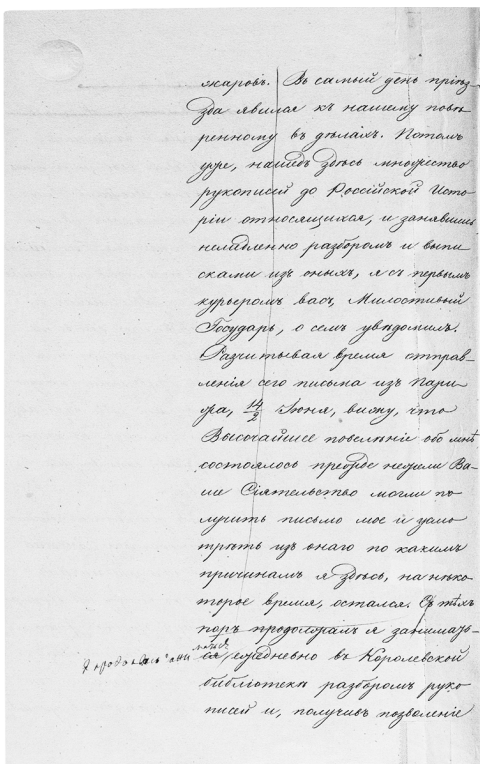 жаровъ. Въ самый день пріѣз-
зда явился къ нашему повѣ
ренному въ дѣлахъ. Потомъ
уже, нашедъ здѣсь множество
рукописей до Россійской Исто
ріи относящихся, и занявшись
немедленно разборомъ и выпи
сками изъ оныхъ, я съ первымъ
курьеромъ васъ, Милостивый
Государь, о семъ увѣдомилъ.
Разчитывая время отправ
ленія сего письма изъ Пари
жа, 14/2 Іюня, вижу, что
Высочайшее повелѣніе обо мнѣ
состоялось прежде нежели Ва
ше Сіятельство могли по
лучить письмо мое и усмо
трѣть изъ онаго по какимъ
причинамъ я здѣсь, на нѣко
торое время, остался. Съ тѣхъ
поръ продолжалъ я занимать
ся, ежедневно въ Королевской
библіотекѣ разборомъ руко
писей и, получивъ позволеніе